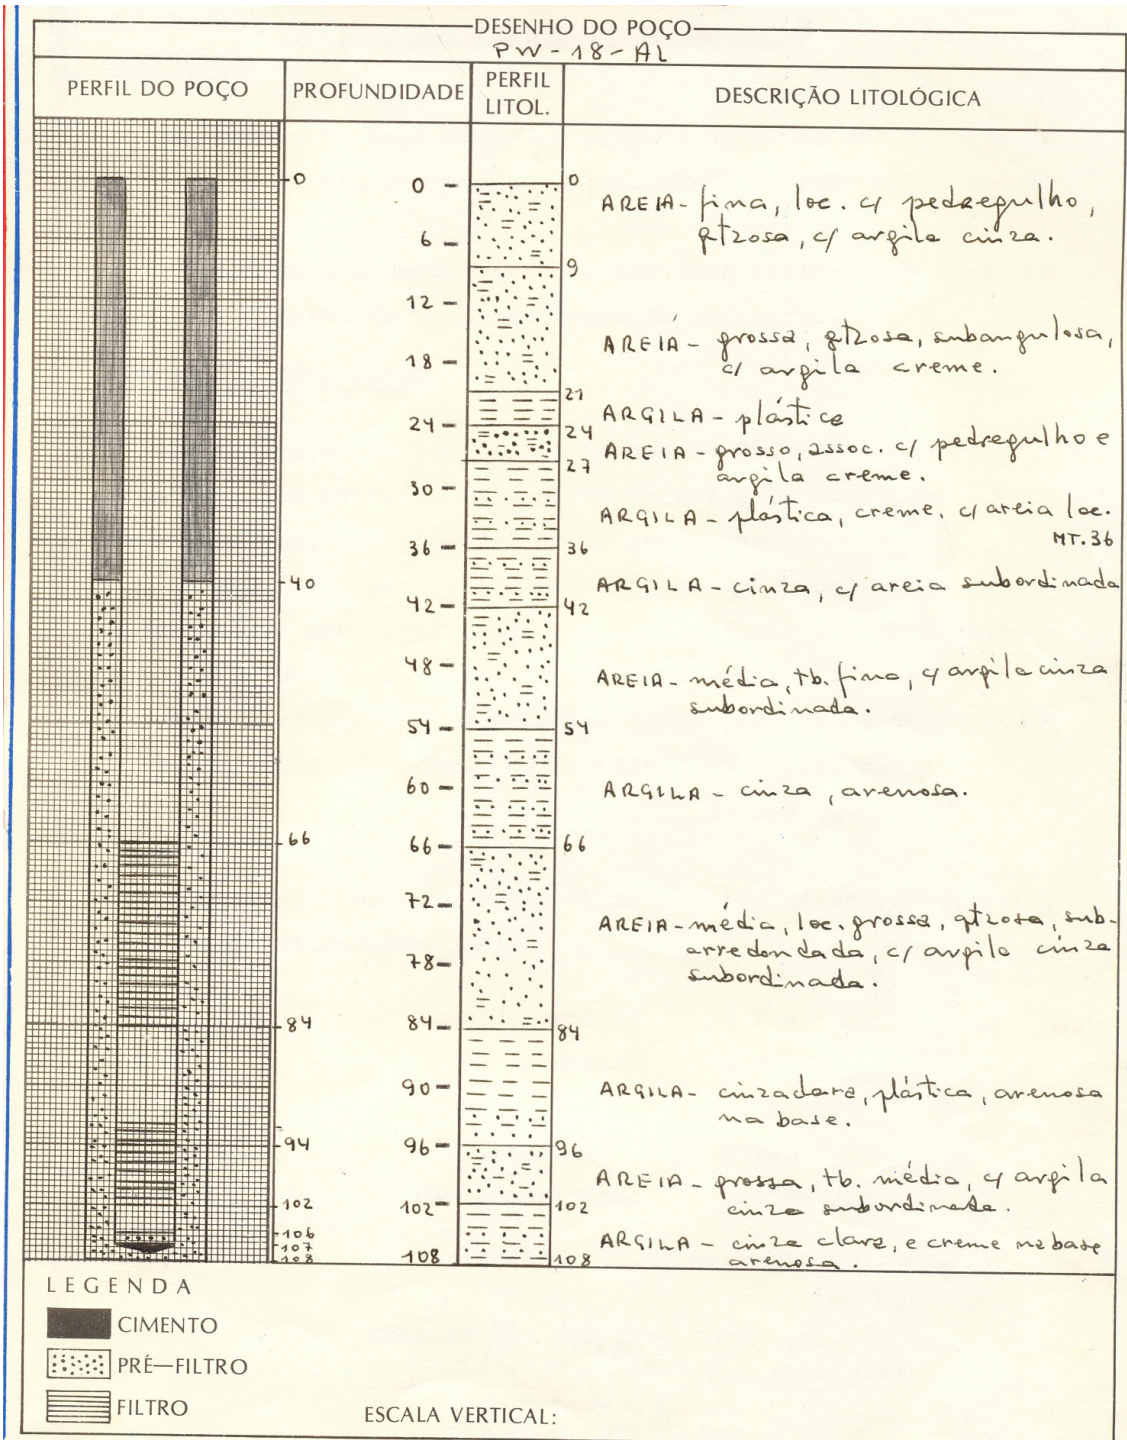 DESENHO DO POÇO
PW-18-AL
PERFIL DO POÇO
PROFUNDIDADE
PERFIL
LITOL.
DESCRIÇÃO LITOLÓGICA
0
40
66
84
94
102
106
107
108
0
6
12
18
24
30
36
42
48
54
60
66
72
78
84
90
96
102
108
0
9
21
24
27
36
42
54
66
84
96
102
108
AREIA- fina, loc. c/ pedregulho,
qtzosa, c/ argila cinza.
AREIA- grossa, qtzosa, subangulosa,
c/ argila creme.
ARGILA- plástica
AREIA- grosso, assoc. c/ pedregulho e
argila creme.
ARGILA- plástica, creme, c/ areia loc.
MT.36
ARGILA- cinza, c/ areia subordinada
AREIA- média, tb. fina, c/ argila cinza
subordinada.
ARGILA- cinza, arenosa.
AREIA- média, loc. grossa, qtzosa, sub-
arredondada, c/ argila cinza
subordinada.
ARGILA- cinza clara, plástica, arenosa
na base.
AREIA- grossa, tb. média, c/ argila
cinza subordinada.
ARGILA- cinza clara, e creme na base
arenosa.
LEGENDA
CIMENTO
PRÉ-FILTRO
FILTRO
ESCALA VERTICAL: